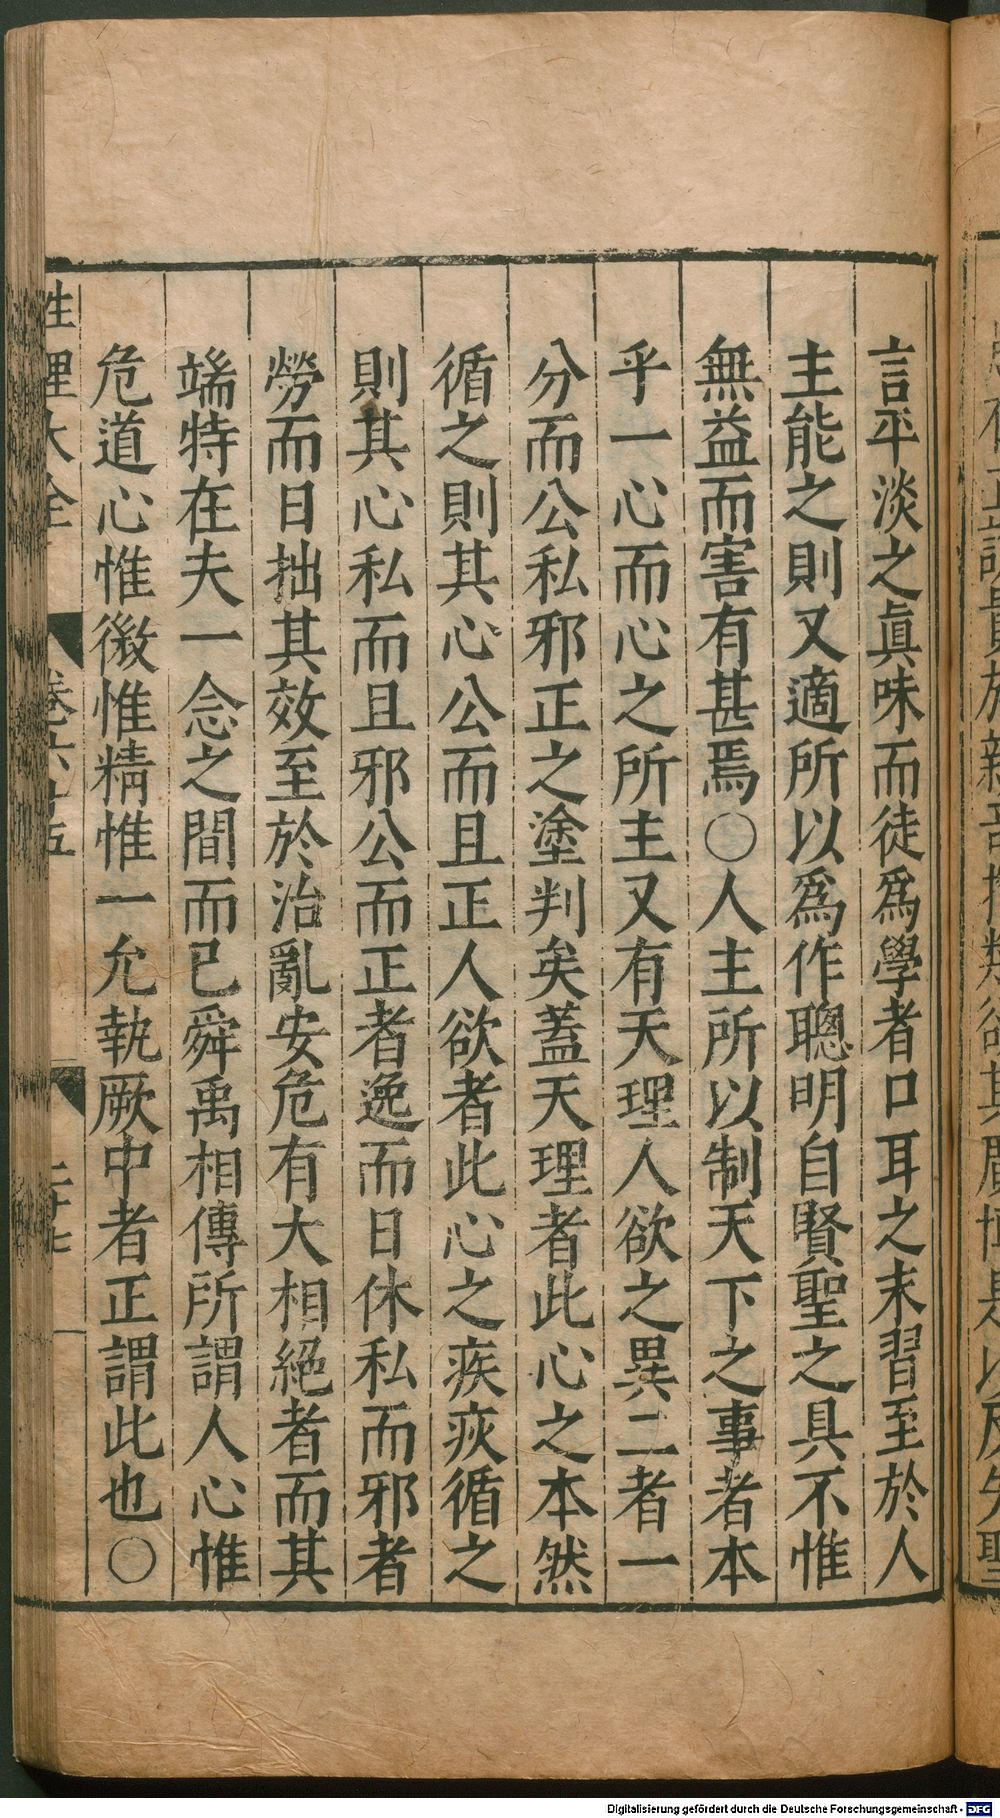 言平淡之眞味而徒爲學者口耳之末習至於人
主能之則又適所以爲作聰明自賢聖之具不惟
無益而害有甚焉○人主所以制天下之事者本
乎一心而心之所主又有天理人欲之異二者一
分而公私邪正之塗判矣蓋天理者此心之本然
循之則其心公而且正人欲者此心之疾疢循之
則其心私而且邪公而正者逸而日休私而邪者
勞而日拙其效至於治亂安危有大相絕者而其
端特在夫一念之間而已舜禹相傳所謂人心惟
危道心惟微惟精惟一允執厥中者正謂此也○
性理大全 卷六十五 二十七
Digitalisierung gefördert durch die Deutsche Forschungsgemeinschaft - DFG